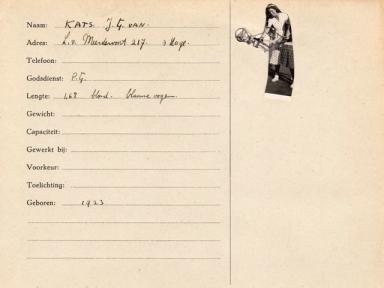 Naam: KATS J.G. van.
Adres: L.v. Meerdervoort 217. 's Hage.
Telefoon:
Godsdienst: P.G.
Lengte: 1,68 blond. blauwe ogen.
Gewicht:
Capaciteit:
Gewerkt bij:
Voorkeur:
Toelichting:
Geboren: 1923